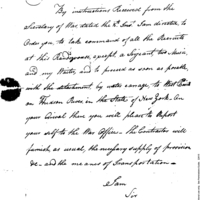 By instructions Received from the
Secretary of War, dated the 2d Inst. I am directed to
Order you, to take command of all the Recruits
at this Rendezvous, except a Sergeant, two Music
and my Waiter and to proceed as soon as possible
with the detachment by water carriage, to West Point
on Hudson River in the State of New York. On
your arrival there you will please to report
yourself to the War Office. The Contractor will
furnish as usual, the necessary supply of provision
&c. and the means of Transportation —
I am
Sir